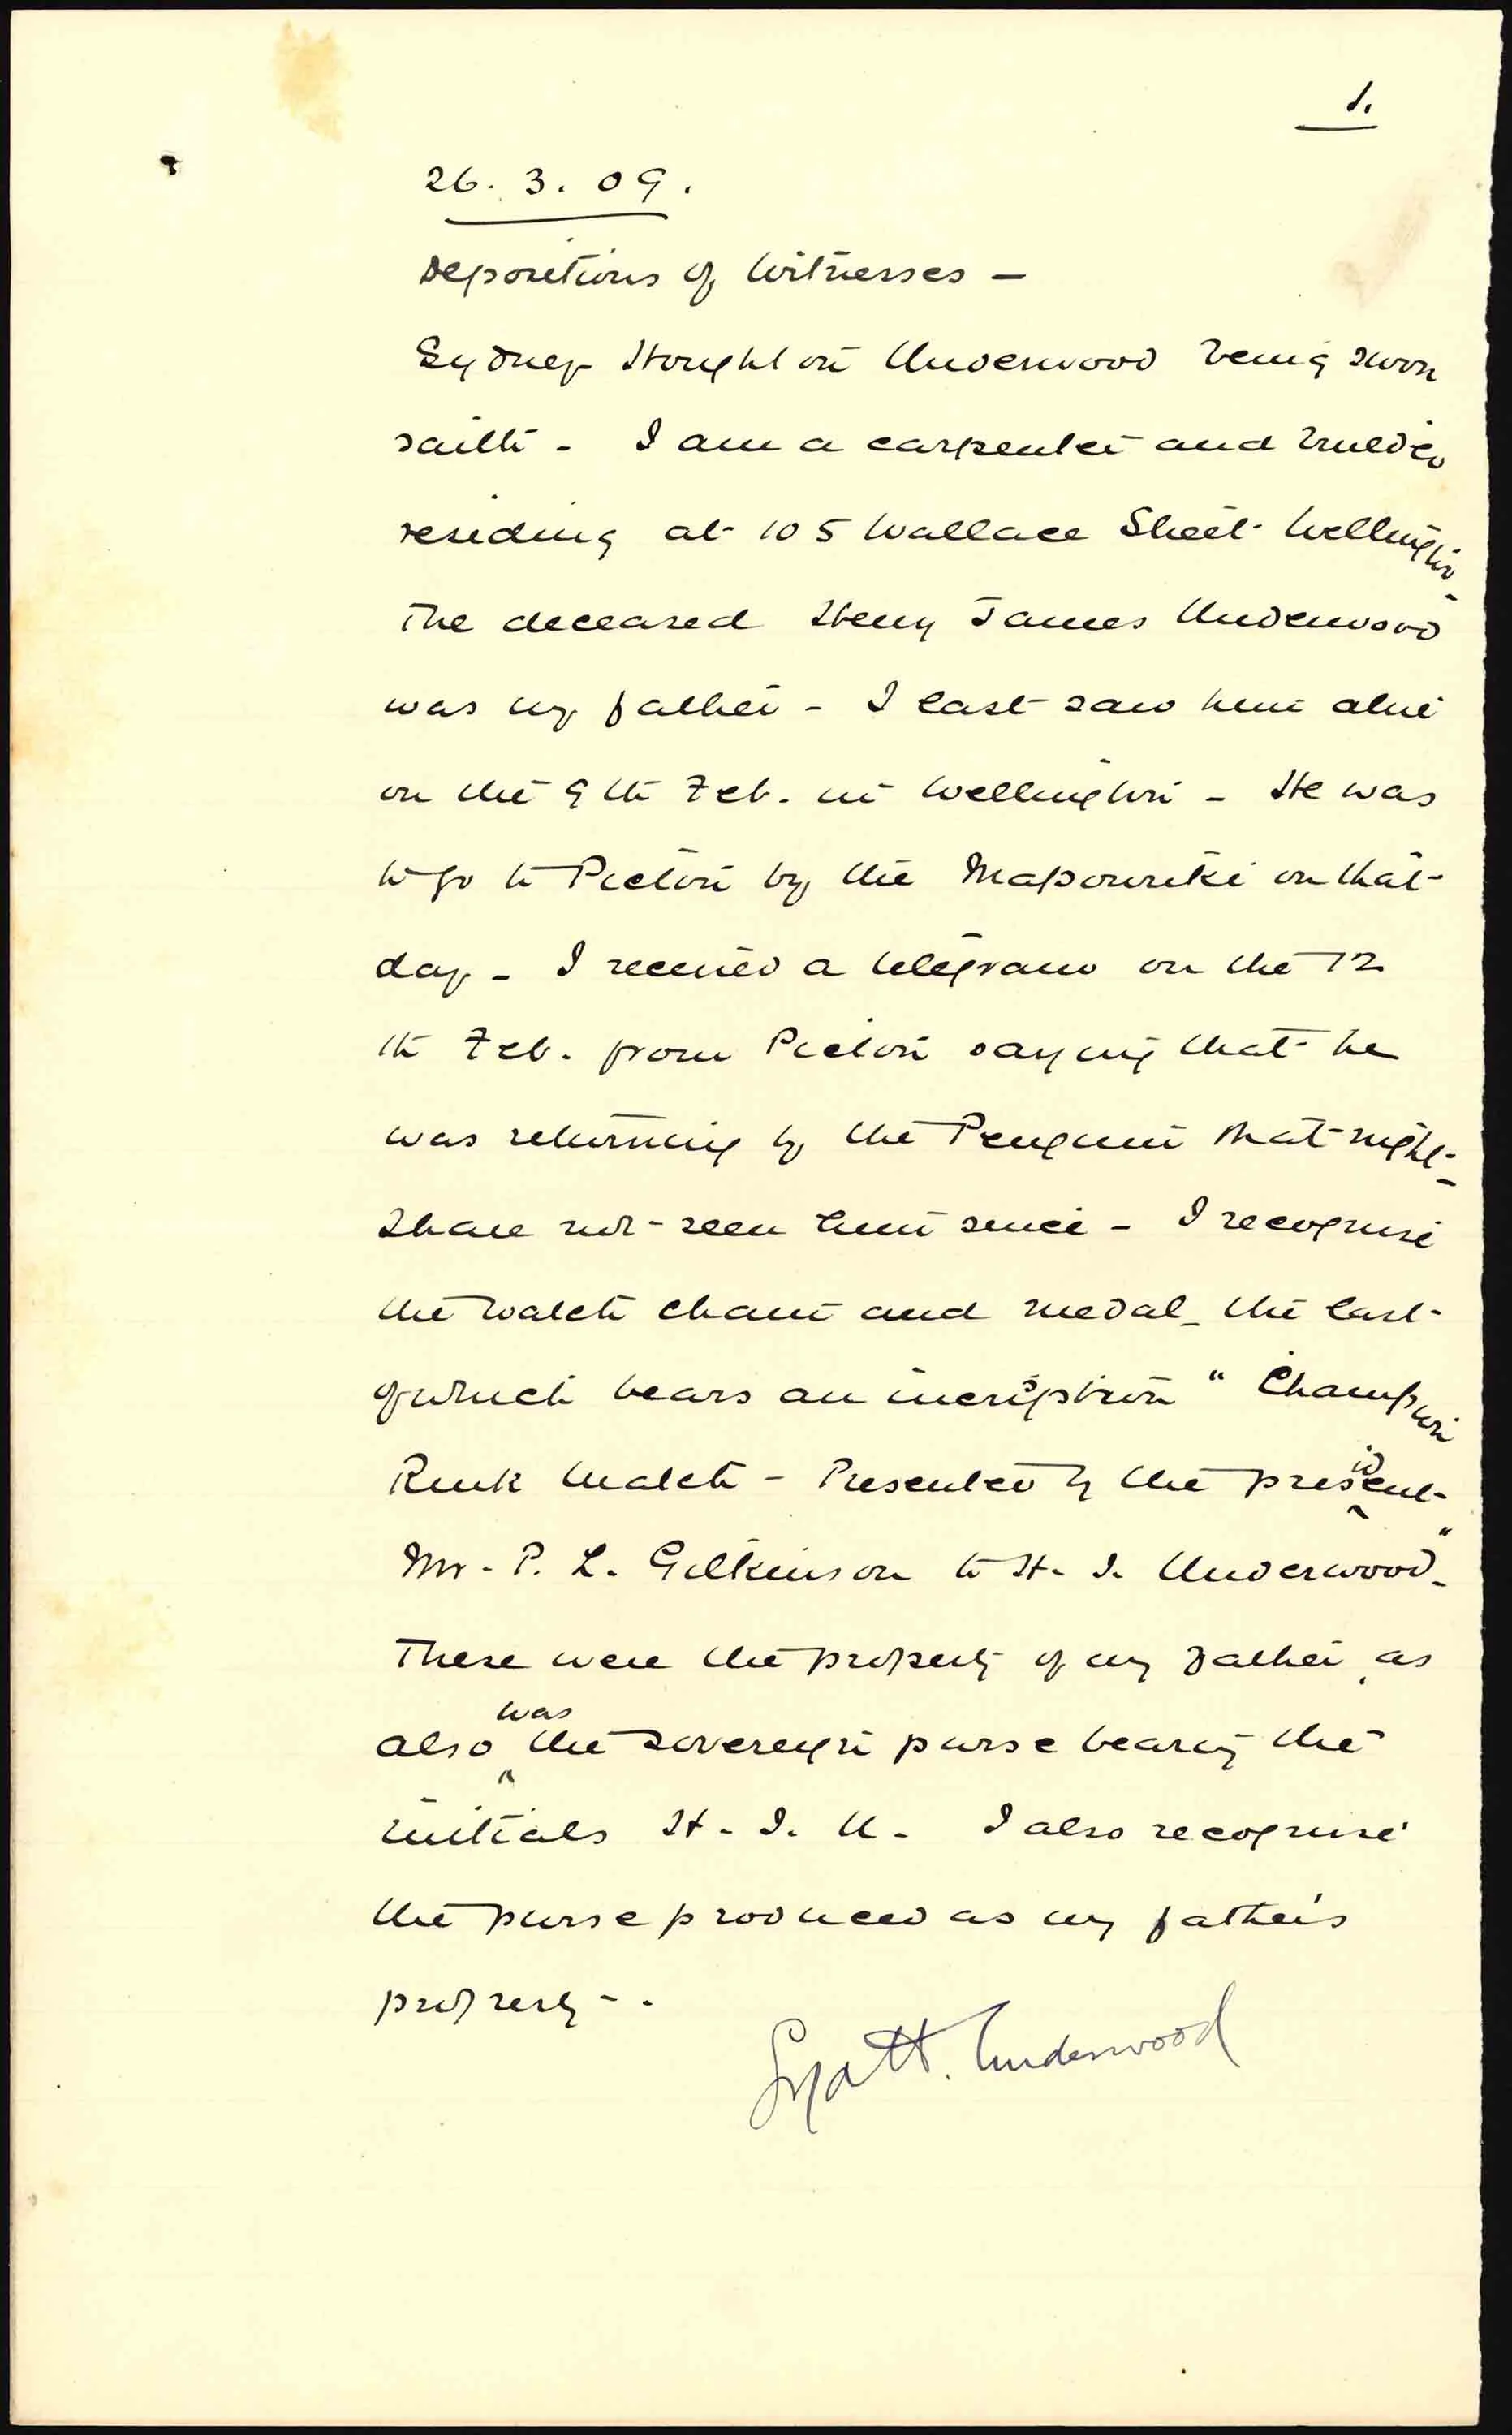 1.
26. 3. 09.
Depositions of Witnesses –
Sydney Houghton Underwood being sworn
saith – I am a carpenter and builder
residing at 105 Wallace Street Wellington –
The deceased Henry James Underwood
was my father – I last saw him alive
on the 9th Feb. in Wellington – He was
to go to Picton by the Mapourika on that
day – I received a telegram on the 12
th Feb. from Picton saying that he
was returning by the Penguin that night –
I have not seen him since – I recognise
the watch chain and medal – the last
of which bears an inscription "Champion
Rink Match – Presented by the president
Mr. P. L. Gilkinson to H. J. Underwood" –
These were the property of my father, as
also was the sovereign purse bearing the
initials H. J. U. I also recognise
the purse produced as my father's
property – .
Underwood